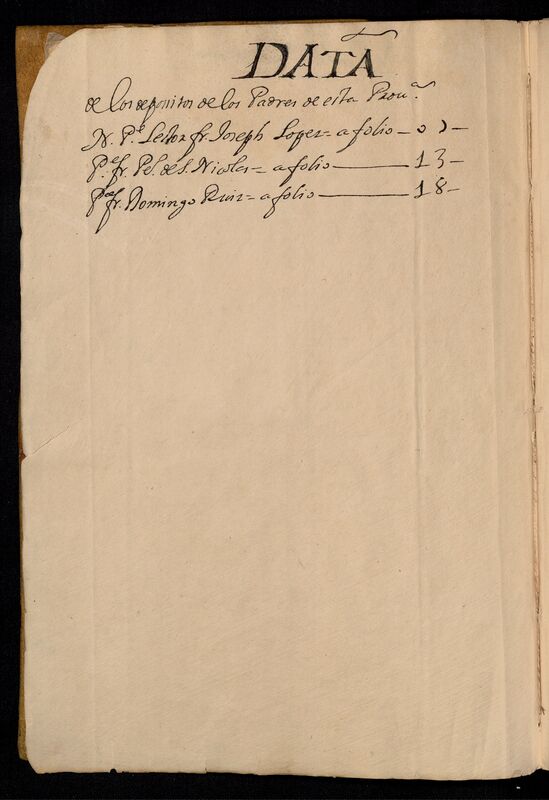 DATA
de los depositos de los Padres de esta Prou.ª
N. P.e Lector fr. Joseph Lopez = a folio —
P.e fr. Pe.l de S. Nicolas = a folio — 13 —
P.e fr. Domingo Ruiz = a folio — 18 —